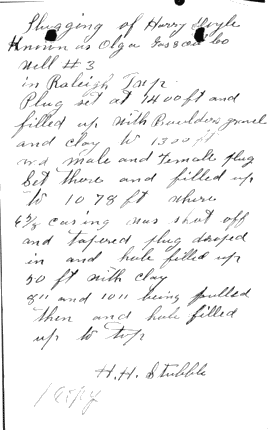 Plugging of Harry Doyle
Known as Olga Gas & Oil Co
Well #3
in Raleigh Twp.
Plug set at 1400 ft and
filled up with Boulders gravel
and clay to 1300 ft
and male and Female plug
Set there and filled up
to 1078 ft where
6 5/8 casing was shot off
and tapered plug droped
in and hole filled up
50 ft with clay
8" and 10" being pulled
then and hole filled
up to top
H. H. Stubble
Copy